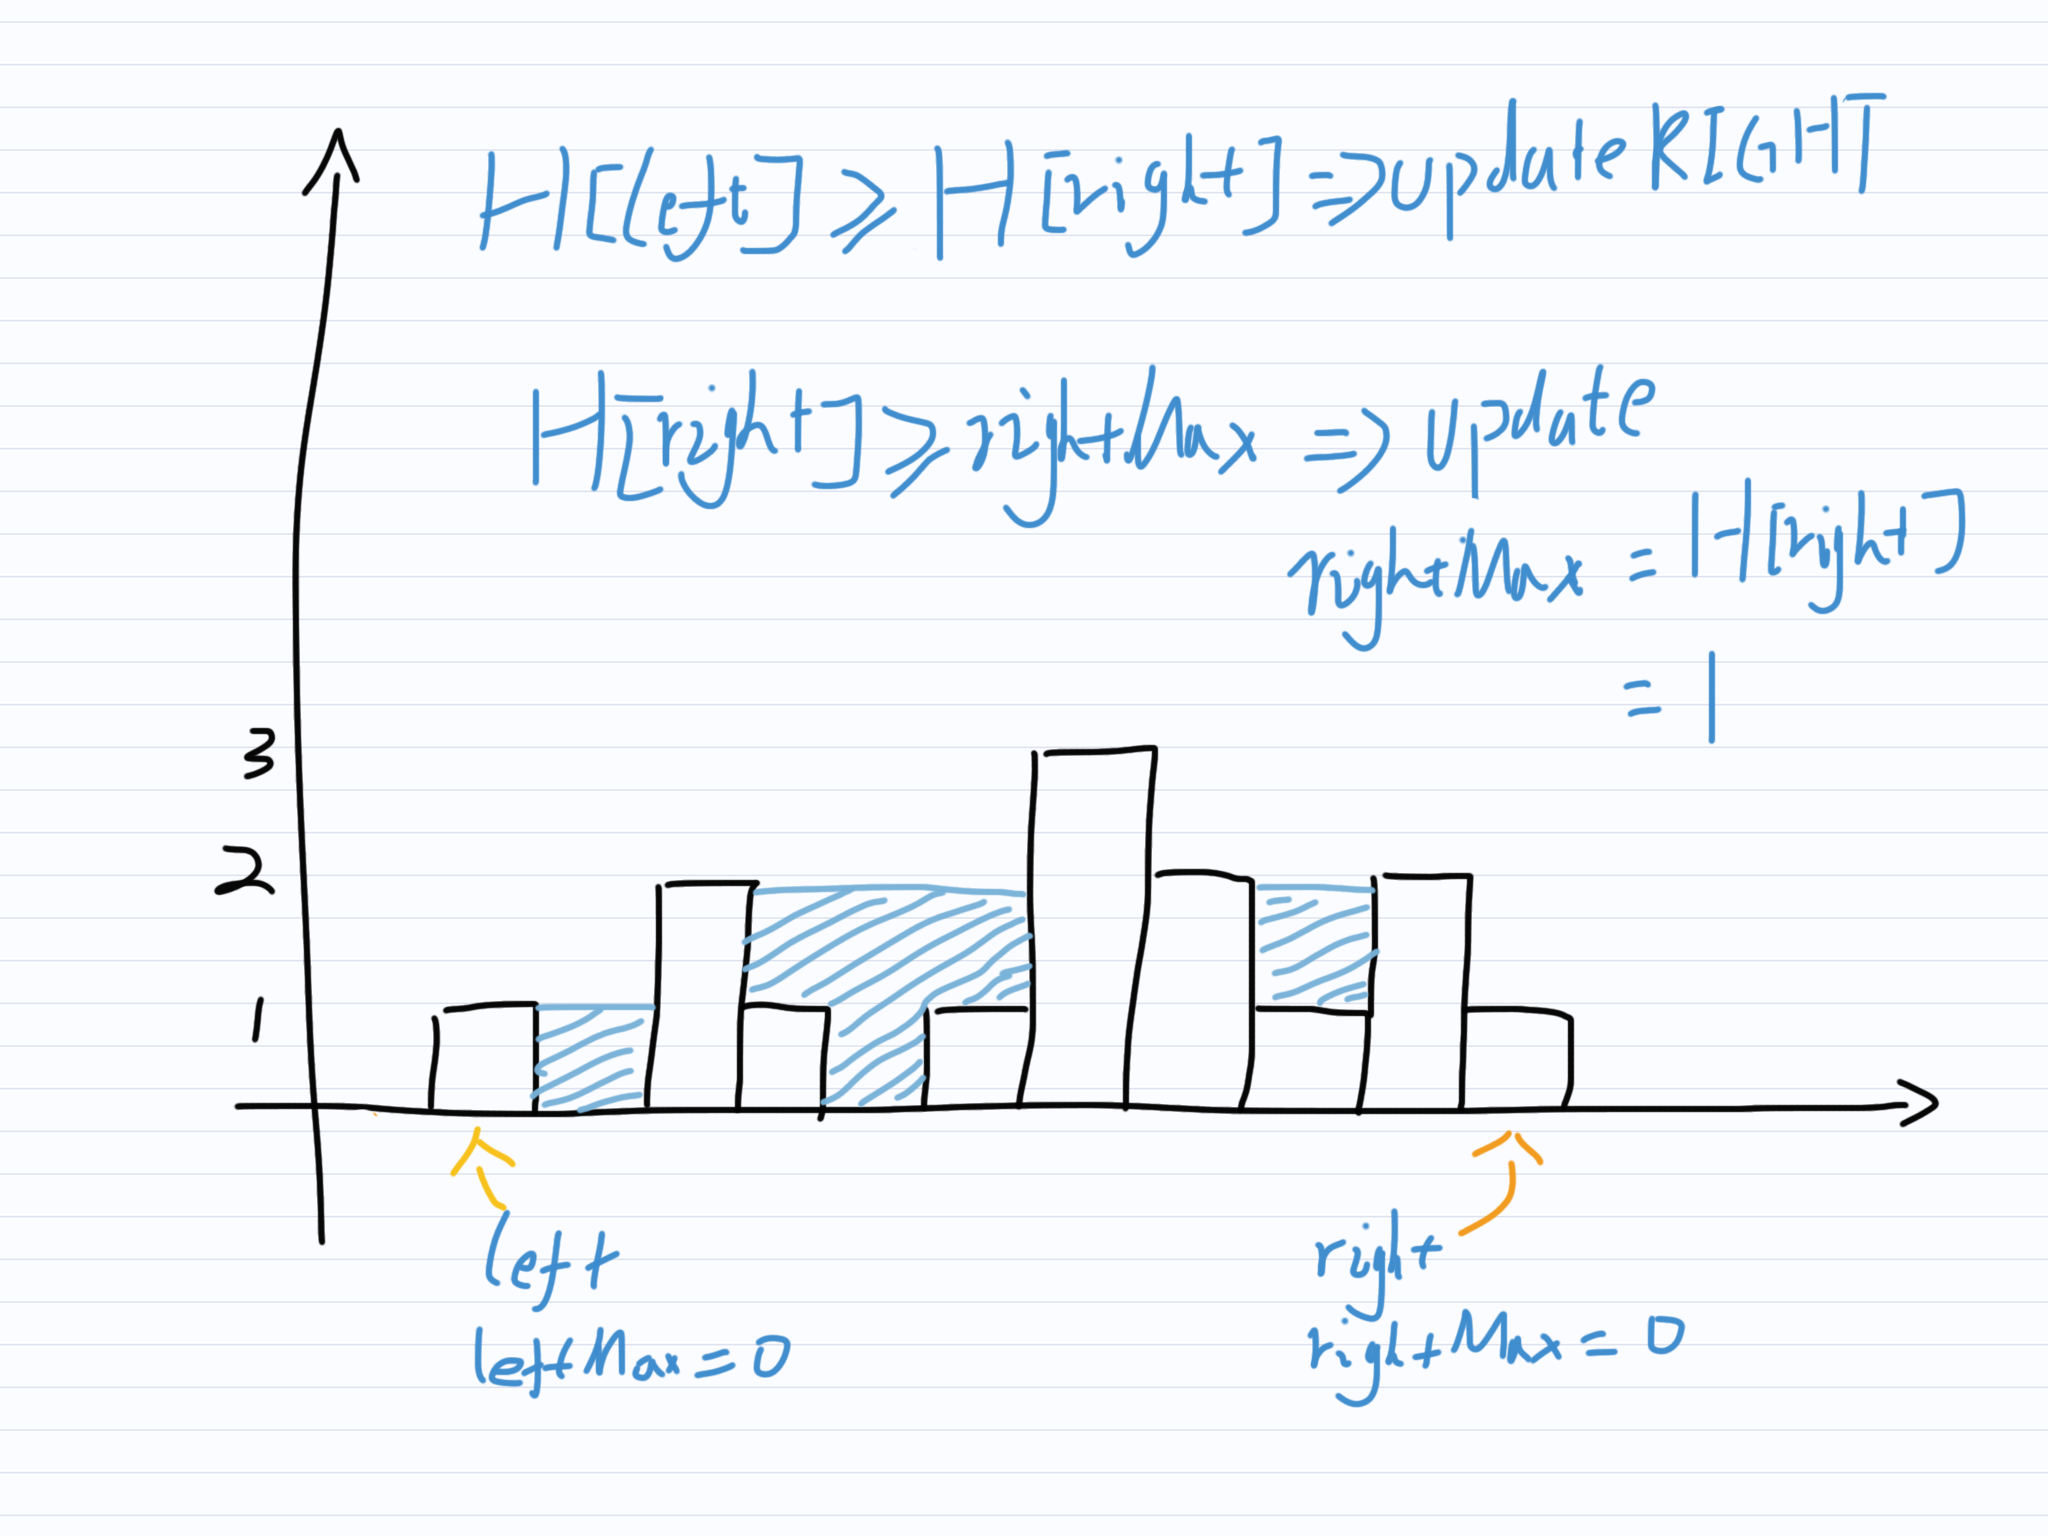 H[left] ⩾ H[right] ⇒ update RIGHT
H[right] ⩾ rightMax ⇒ update
rightMax = H[right]
= 1
3
2
1
left
leftMax = 0
right
rightMax = 0